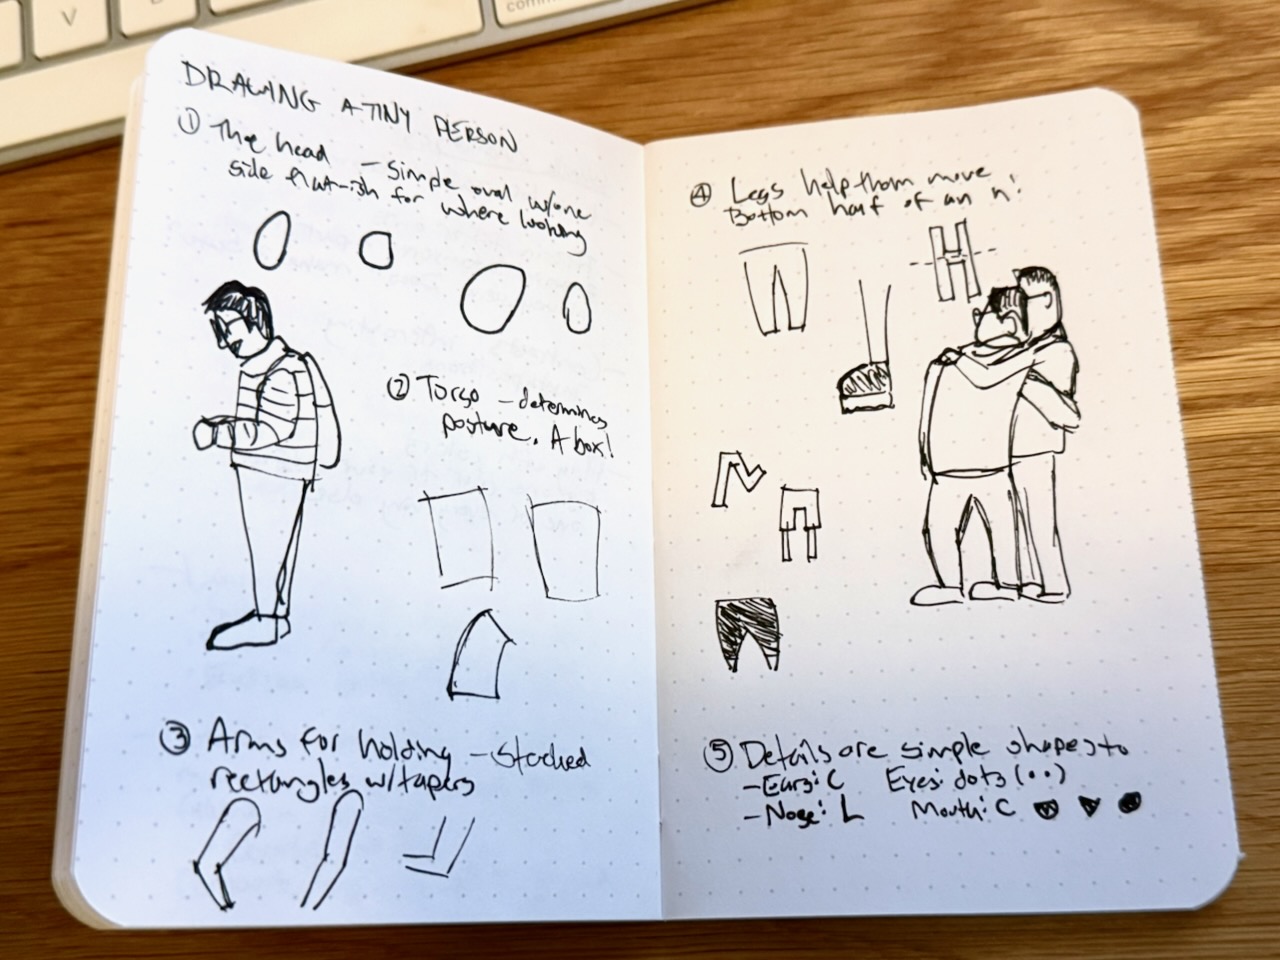 V
comm
DRAWING A TINY PERSON
① The head – Simple oval w/one
side flat-ish for where looking
② Torso – determines
posture. A box!
③ Arms for holding – stacked
rectangles w/tapers
④ Legs help them move
Bottom half of an 'n'!
⑤ Details are simple shapes too
– Ears: C Eyes: dots (··)
– Nose: L Mouth: C